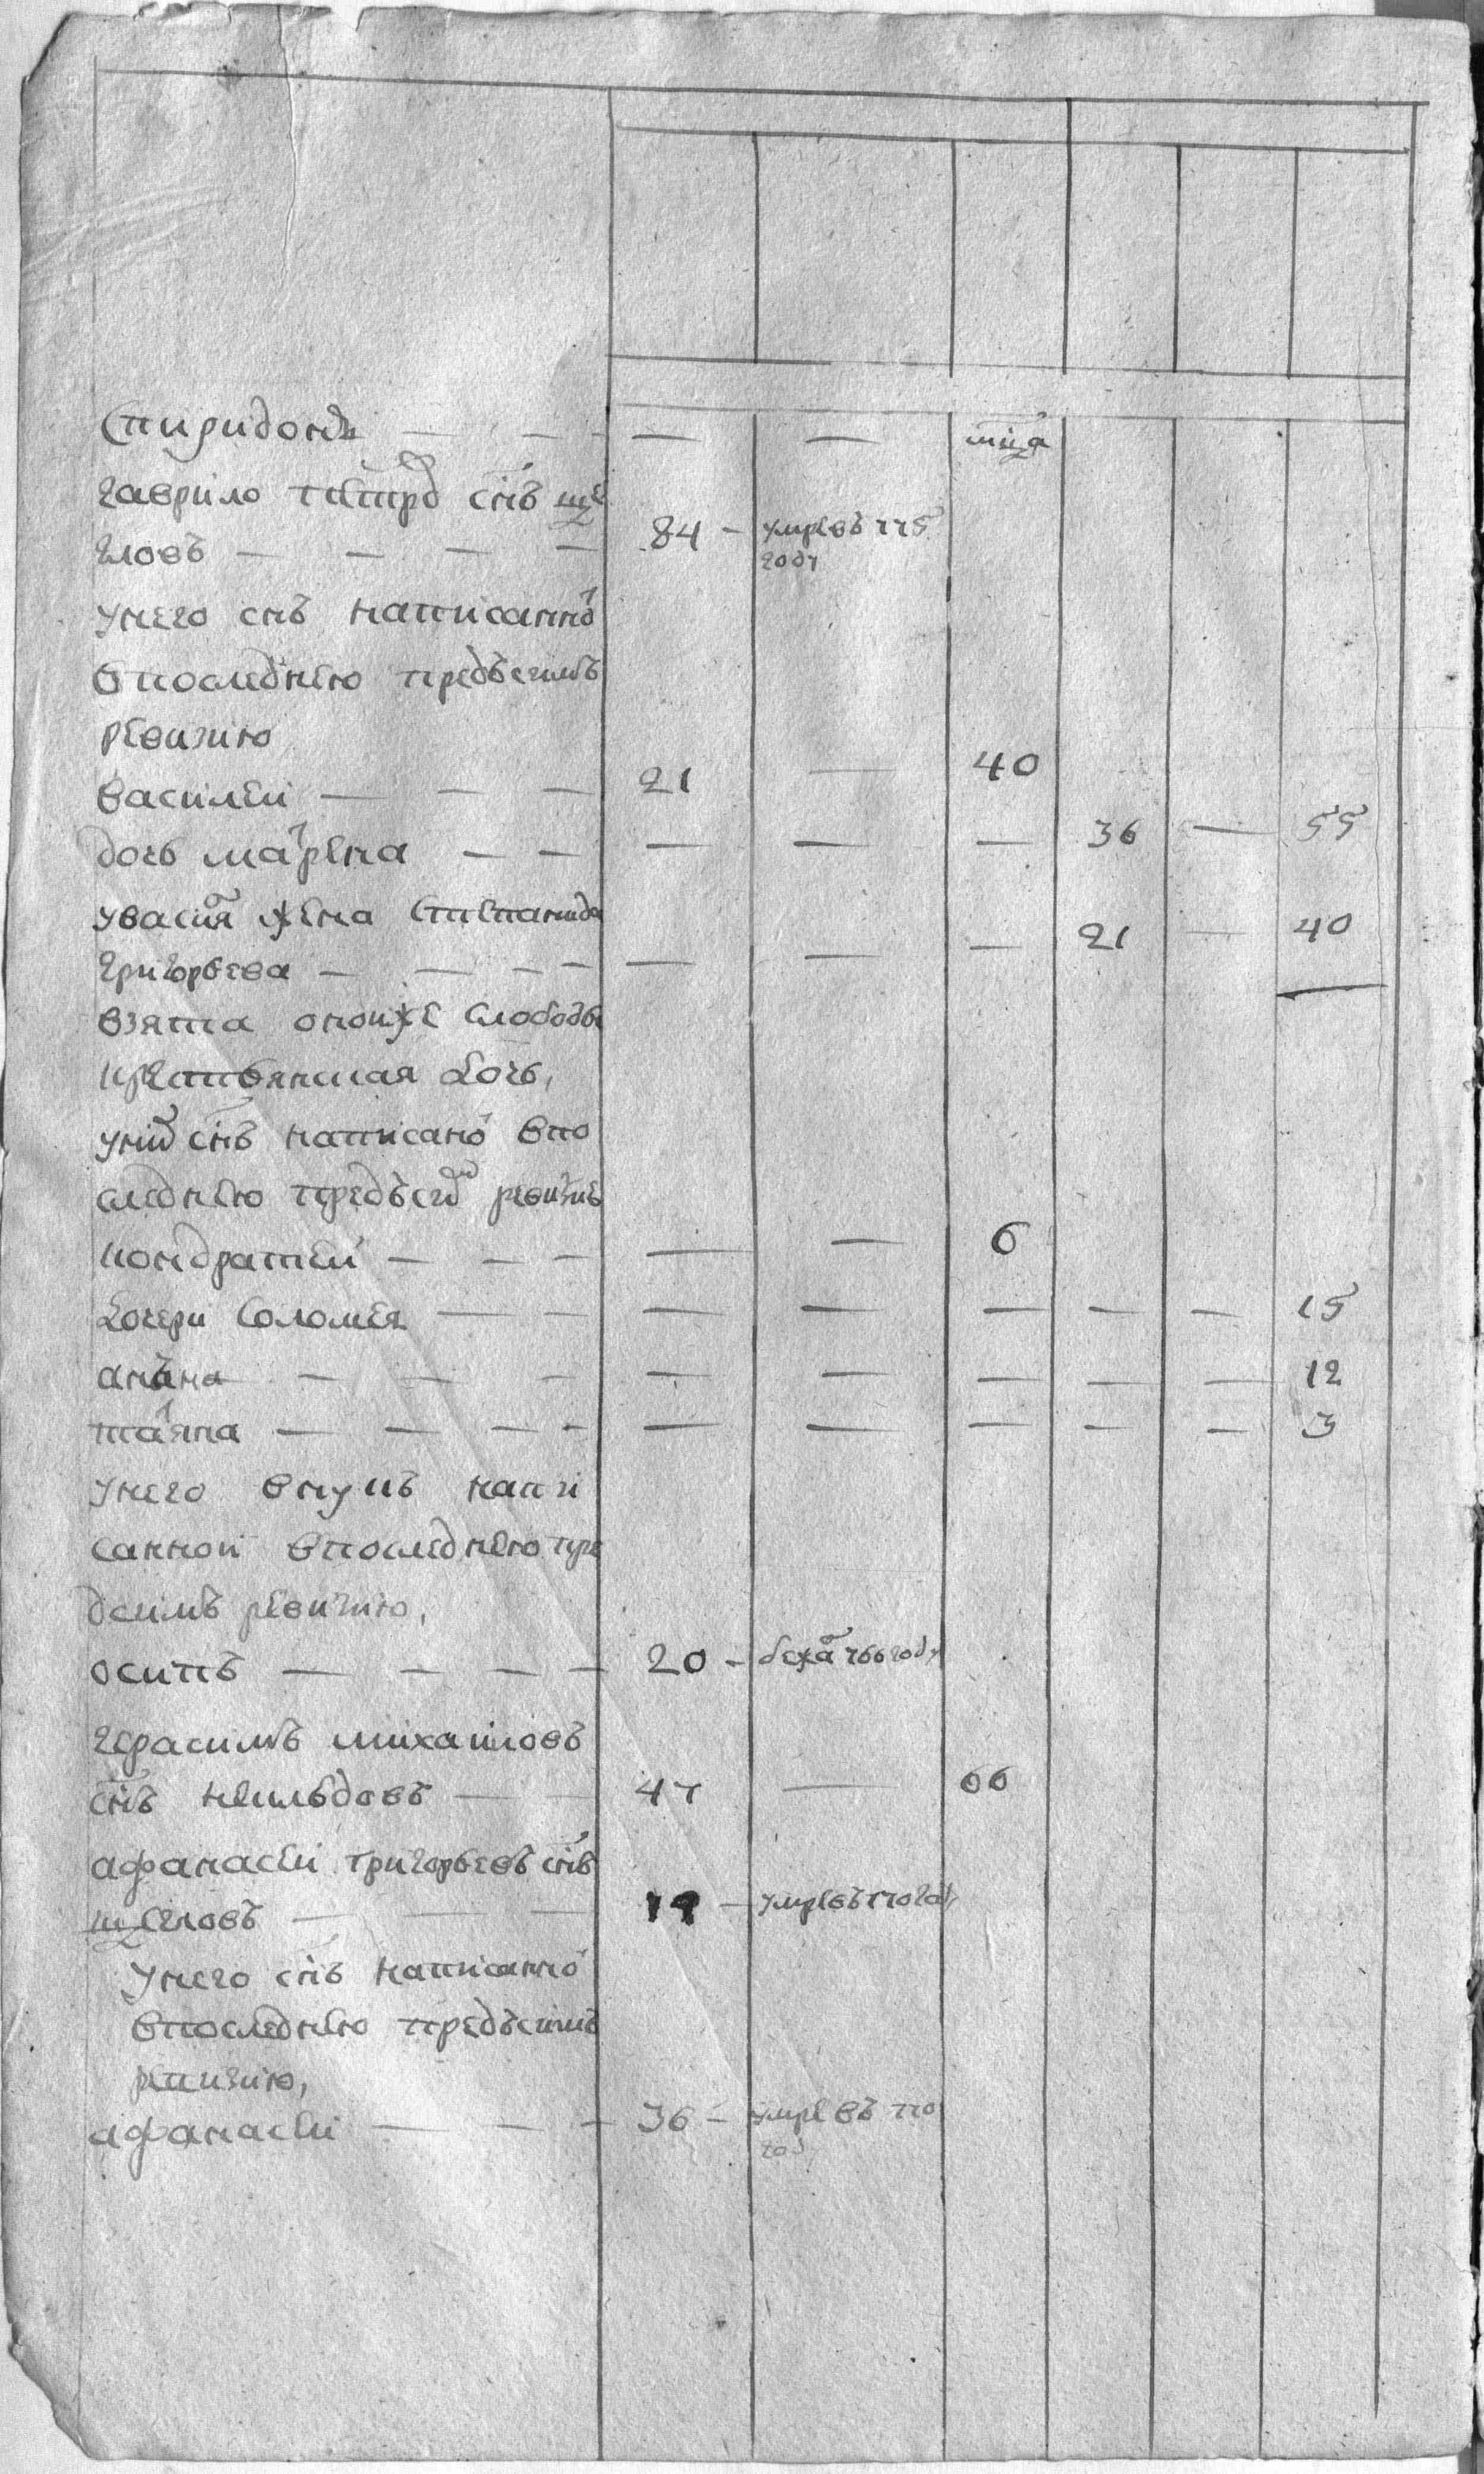 Спиридонъ — — — — — мца
гаврило петро снъ ще
гловъ — — — — 84 — умре въ 775
году
унего снъ написанно
впоследнею предъсимъ
ревизию
василеи — — — 21 — 40
дочь марена — — — — — 36 — 55
увасия жена Степанида
григорьева — — — — — — — 21 — 40
взята оноиже слободы
крестьянская дочь,
уних снъ написано впо
следнею предъсим ревизие
кондратеи — — — — — 6
дочери Соломея — — — — — — — 15
анъна — — — — — — — — 12
таяна — — — — — — — — — 3
унего внукъ напи
саннои впоследнею пре
дсимъ ревизию,
осипъ — — — — 20 — бежа 766 году
герасимъ михаиловъ
снъ — — 47 — 66
афанасеи григорьевъ снъ
щегловъ — — — 19 — умре въ 770 году
унего снъ написанно
впоследнею предъсимъ
ревизию,
афанасеи — — — 36 — умре въ 770
год